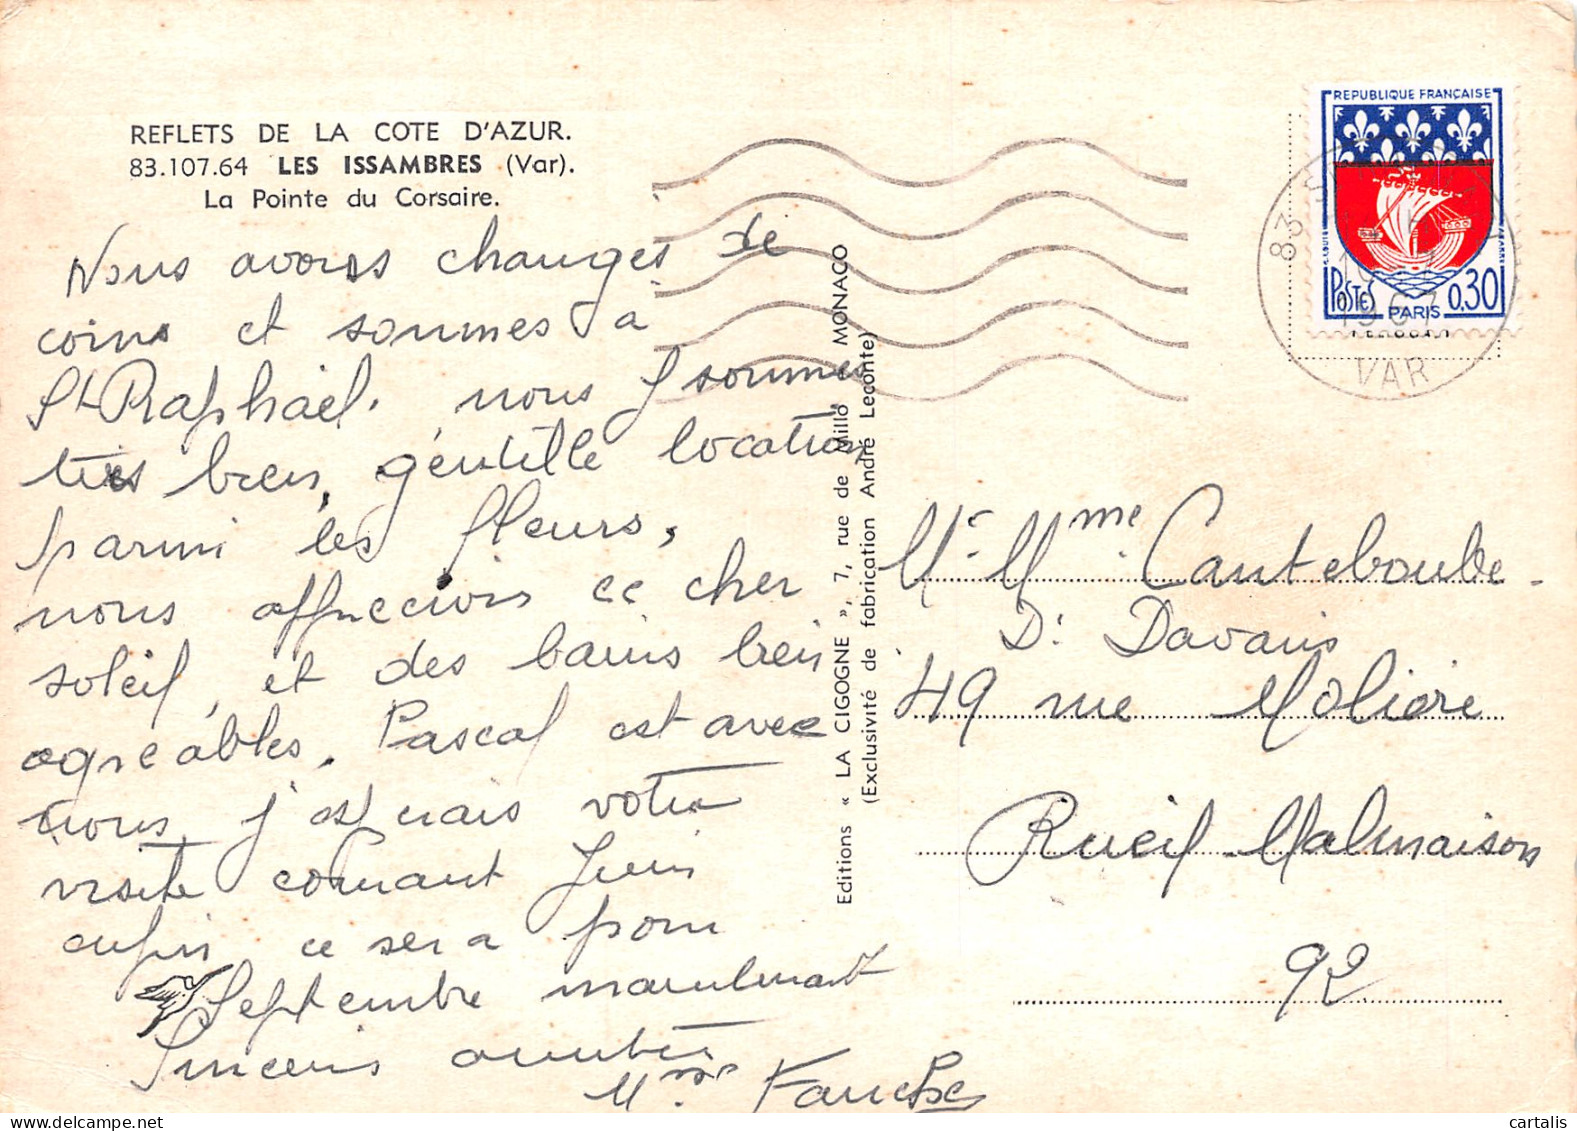 REFLETS DE LA COTE D'AZUR.
83.107.64 LES ISSAMBRES (Var).
La Pointe du Corsaire.
Nous avons changés de
coins et sommes a
St Raphaël. nous y sommes
très bien, gentille location
parmi les fleurs,
nous apprecions ce cher
soleil, et des bains bien
agreables. Pascal est avec
nous, j'esperais votre
visite courant Juin
enfin ce sera pour
Septembre maintenant
Sinceres amities
Mme Fauche
Editions « LA CIGOGNE », 7, rue de Millo - MONACO
(Exclusivité de fabrication André Leconte)
REPUBLIQUE FRANÇAISE
POSTES 0,30
PARIS
83
1967
VAR
Mr. Mme. Canteboube.
Dr Davans
49 rue Molière
Rueil-Malmaison
92
cartalis